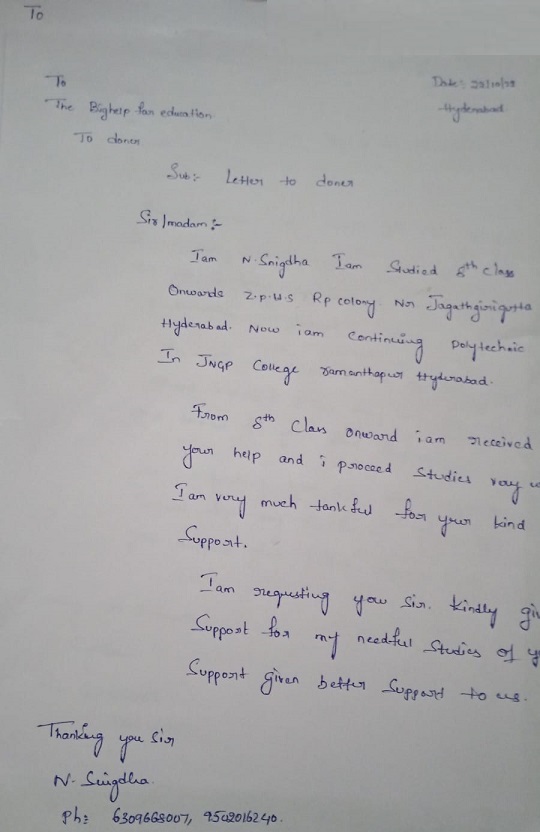 To
To
Date:
The Bighelp for education
Hyderabad
To doner
Sub:- Letter to doner
Sir/madam:-
Iam N.Snigdha Iam Studied 8th class
Onwards Z.p.H.S Rp colony Nr Jagathgirigutta
Hyderabad. Now iam continuing polytechnic
In JNGP College ramanthapur Hyderabad.
From 8th Class onward iam received
your help and i proceed Studies
I am very much tankful for your kind
Support.
Iam requsting you Sir. kindly
Support for my needful Studies of
Support given better Support to us.
Thanking you Sir
N. Snigdha.
Ph: 6309668007, 9502016240.